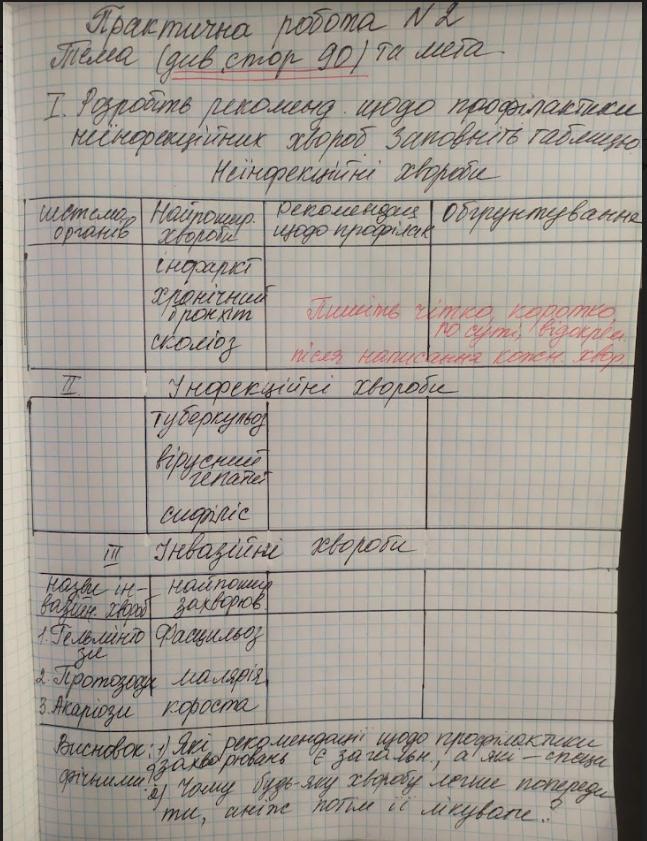 Практична робота N 2
Тема (див стор 90) та мета.
I. Розробіть рекоменд. щодо профілактики
неінфекційних хвороб Заповніть таблицю
Неінфекційні хвороби
система органів
Найпошир. хвороби
рекомендац щодо профілак
Обгрунтування
інфаркт
хронічний бронхіт
сколіоз
Пишіть чітко, коротко,
по суті, відокрем.
після написання кожн. хвор
II. Інфекційні хвороби
туберкульоз
вірусний гепатит
сифіліс
III Інвазійні хвороби
назви ін-
вазійн. хвороб
найпошир
захворюв.
1. Гельмінто
зи
Фасцильоз
2. Протозоози
малярія
3. Акаріози
короста
Висновок: 1) Які рекомендації щодо профілактики
захворювань є загальн., а які – специ
фічними?
2) Чому будь-яку хворобу легше попереди
ти, аніж потім її лікувати?